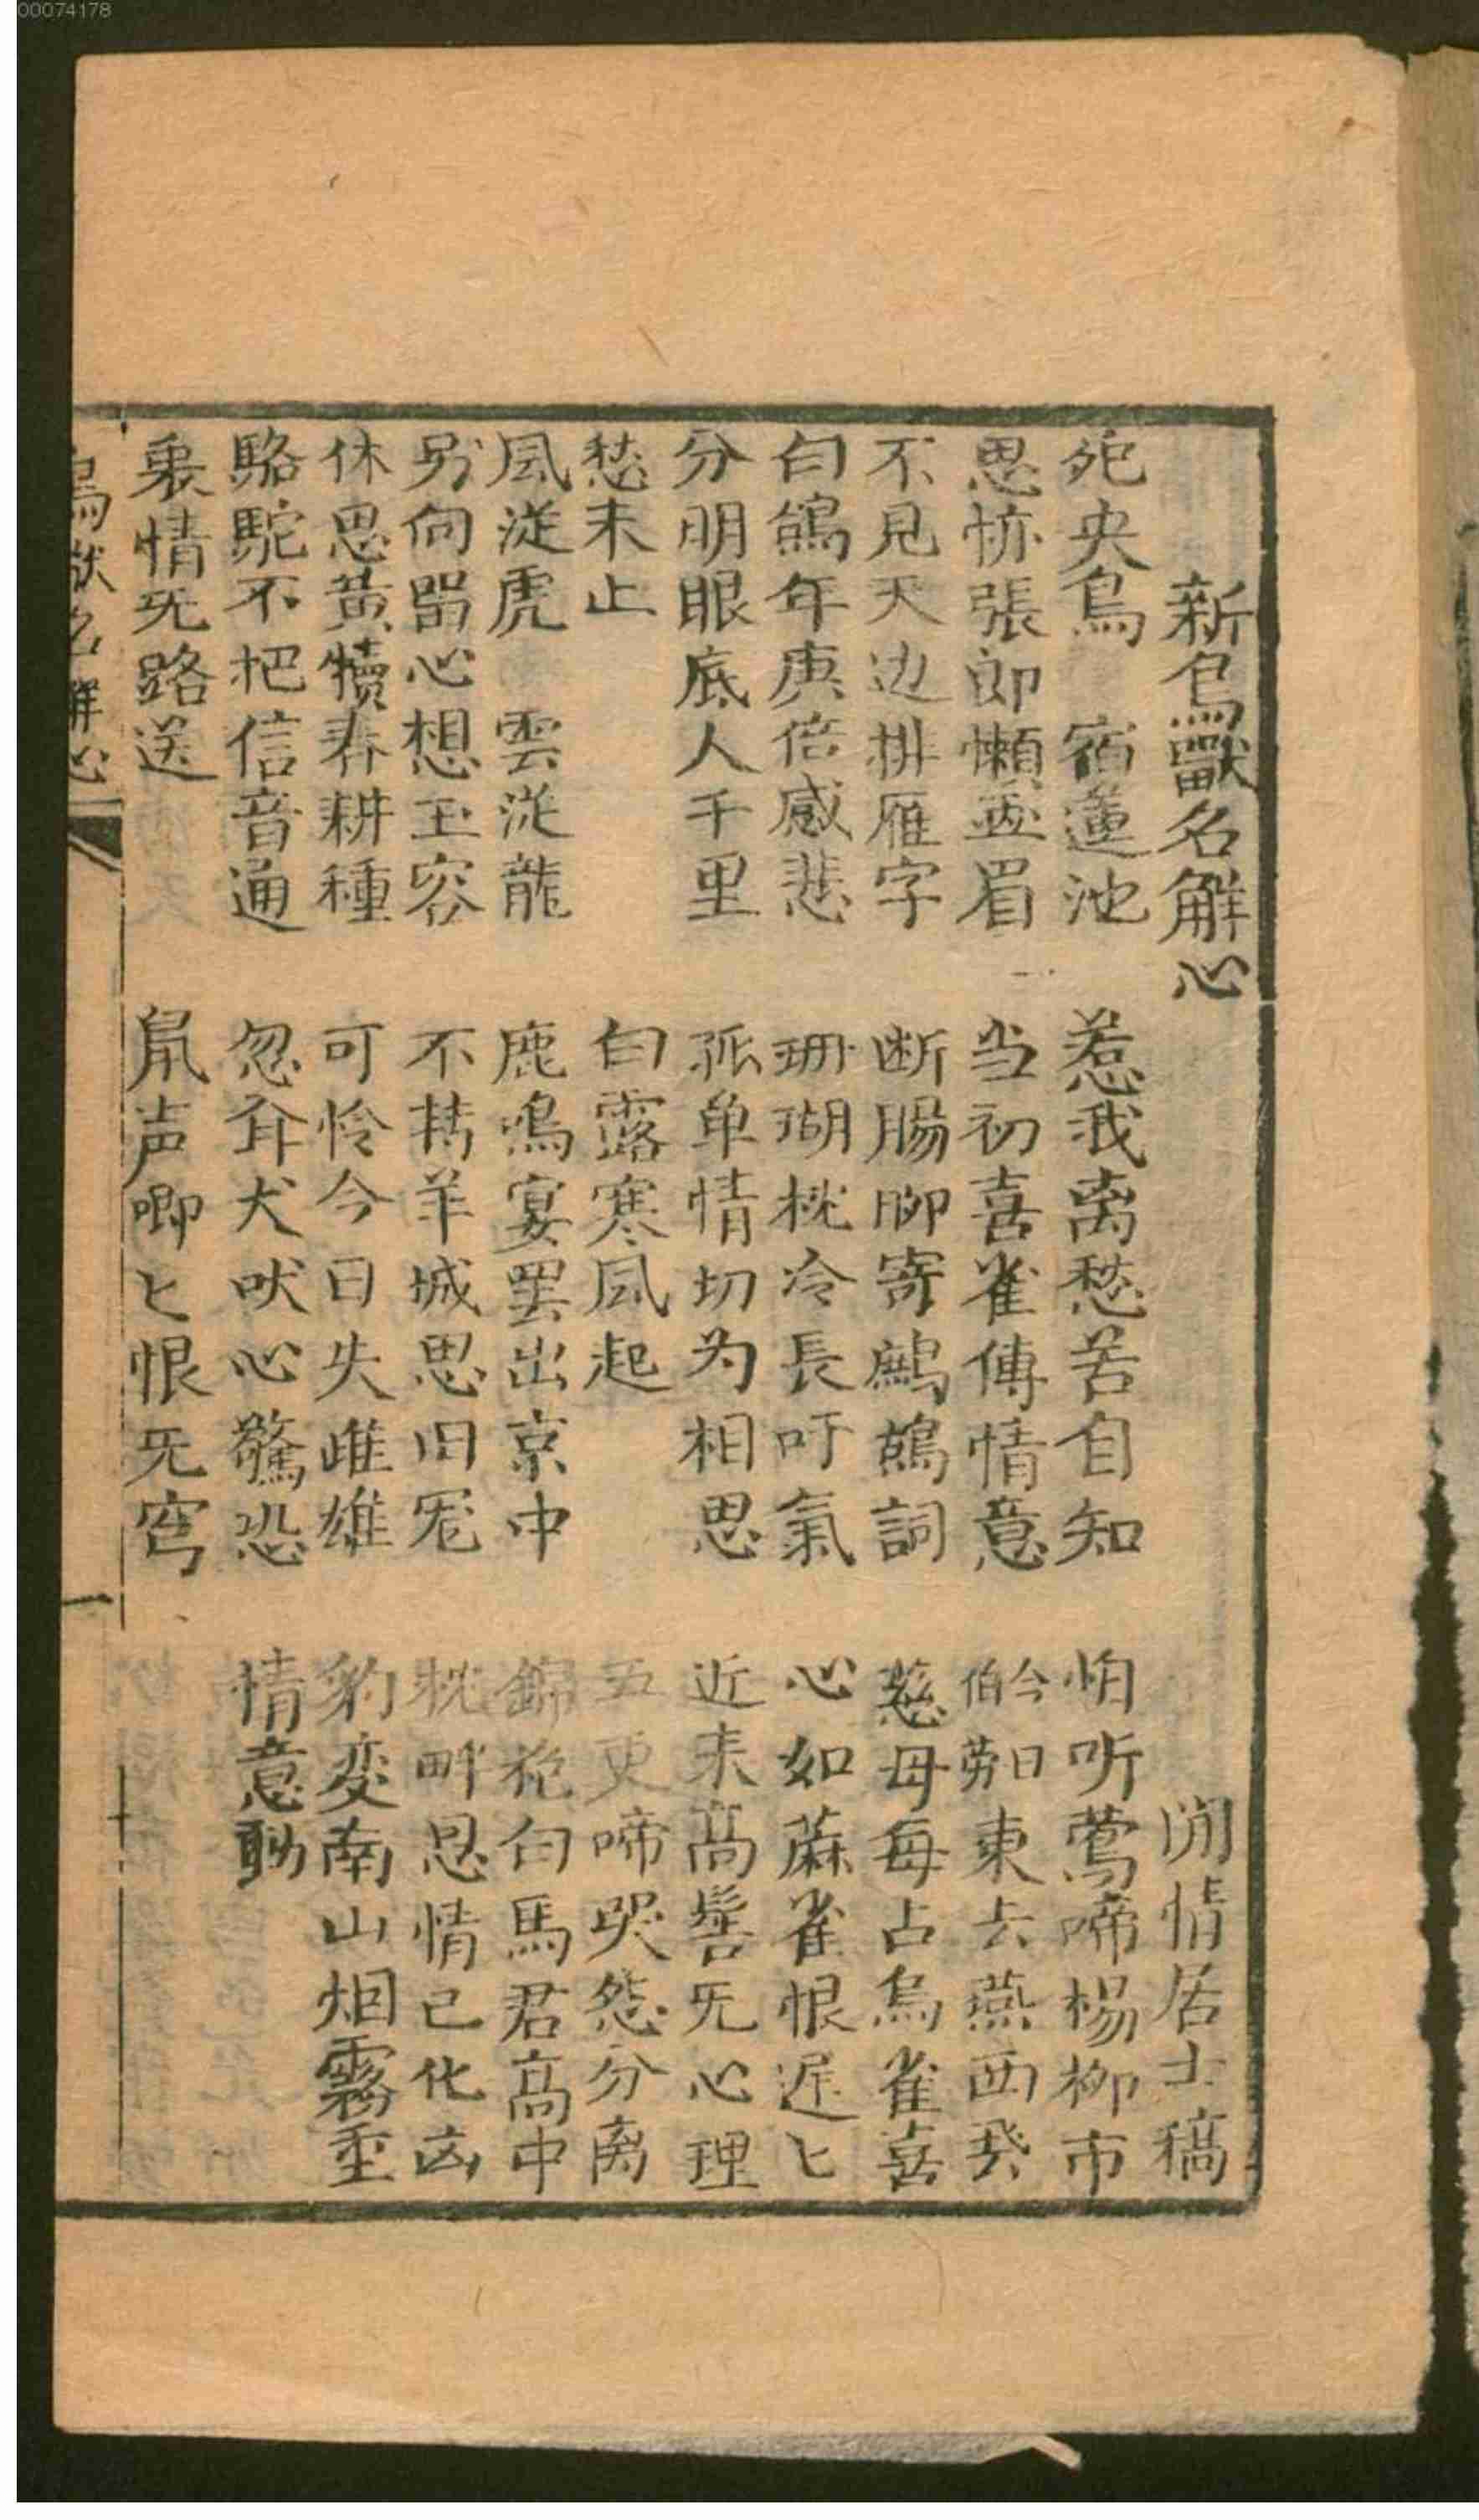 新鳥獸名解心　閒情居士稿
夗央鳥　宿蓮池　惹我离愁苦自知　怕听鶯啼楊柳市
思悵張郎懶画眉　当初喜雀傳情意　今日伯劳東去燕西飛
不見天边排雁字　断腸聊寄鷓鴣詞　慈母每占烏雀喜
白鴿年庚倍感悲　珊瑚枕冷長吁氣　心如蔴雀恨迟匕
分明眼底人千里　孤单情切为相思　近来高髻旡心理
愁未止　白露寒風起　五更啼哭怨分离
風從虎　雲從龍　鹿鳴宴罢出京中　錦袍白馬君高中
另向留心想玉容　不转羊城思旧宠　枕畔恩情已化凶
休思黄犢春耕種　可怜今日失雌雄　豹变南山烟霧重
駱駝不把信音通　忽耳犬吠心驚恐　情意動
衷情旡路送　鼠声唧匕恨旡穹
鳥獣名解心　一
00074178